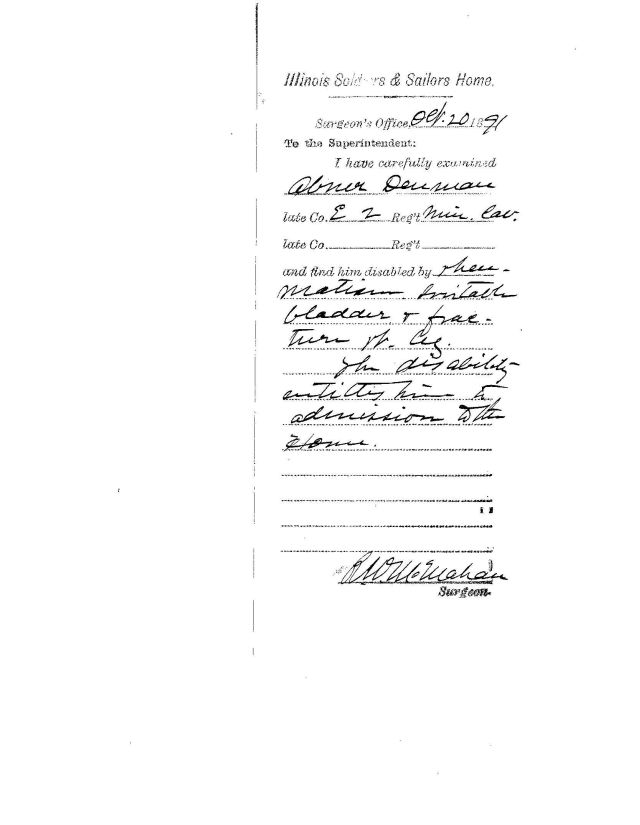 Illinois Soldiers & Sailors Home.
Surgeon's Office, Oct. 20 1891
To the Superintendent:
I have carefully examined
Abner Denman
late Co. E 2 Reg't Minn. Cav.
late Co. Reg't
and find him disabled by rheu-
matism Irritable
bladder & frac-
ture rt. leg.
The disability
entitles him to
admission to the
Home.
Surgeon.